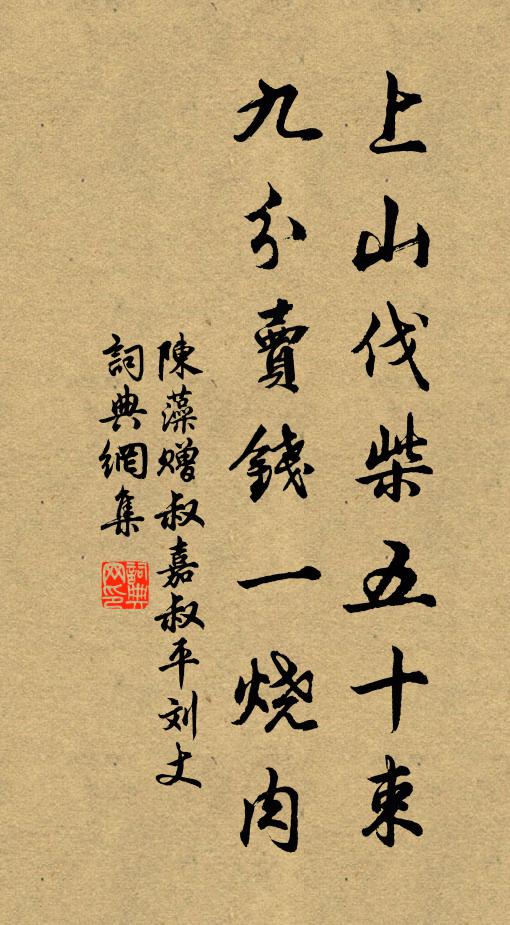 上山伐柴五十束
九分賣錢一烧肉
陳藻贈叔嘉叔平刘丈
詞典網集
詞典网印